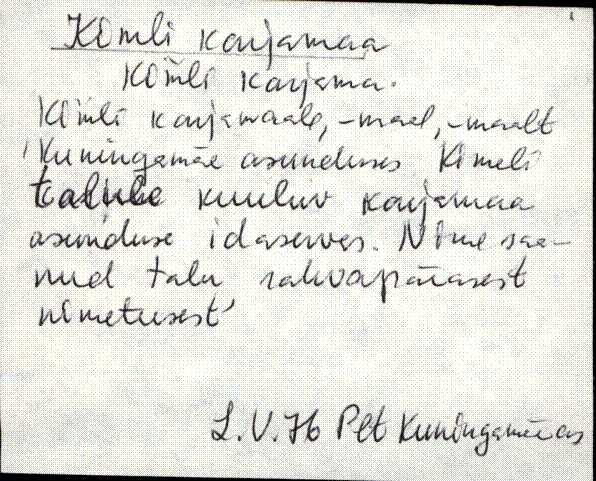 Kimli karjamaa
Kimli karjama.
Kimli karjamaale, -maal, -maalt
'Kuningamäe asunduses Kimeli
talule kuuluv karjamaa
asunduse idaserves. Nime saa-
nud talu rahvapärasest
nimetusest'
L.V.76 Plt Kuningamäeas